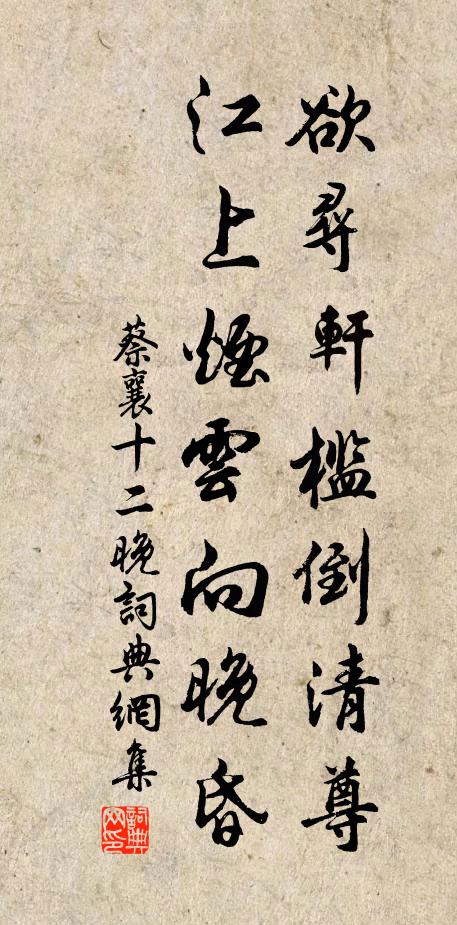 欲尋軒檻倒清尊
江上煙雲向晚昏
蔡襄十二晚詞典網集
詞典網印